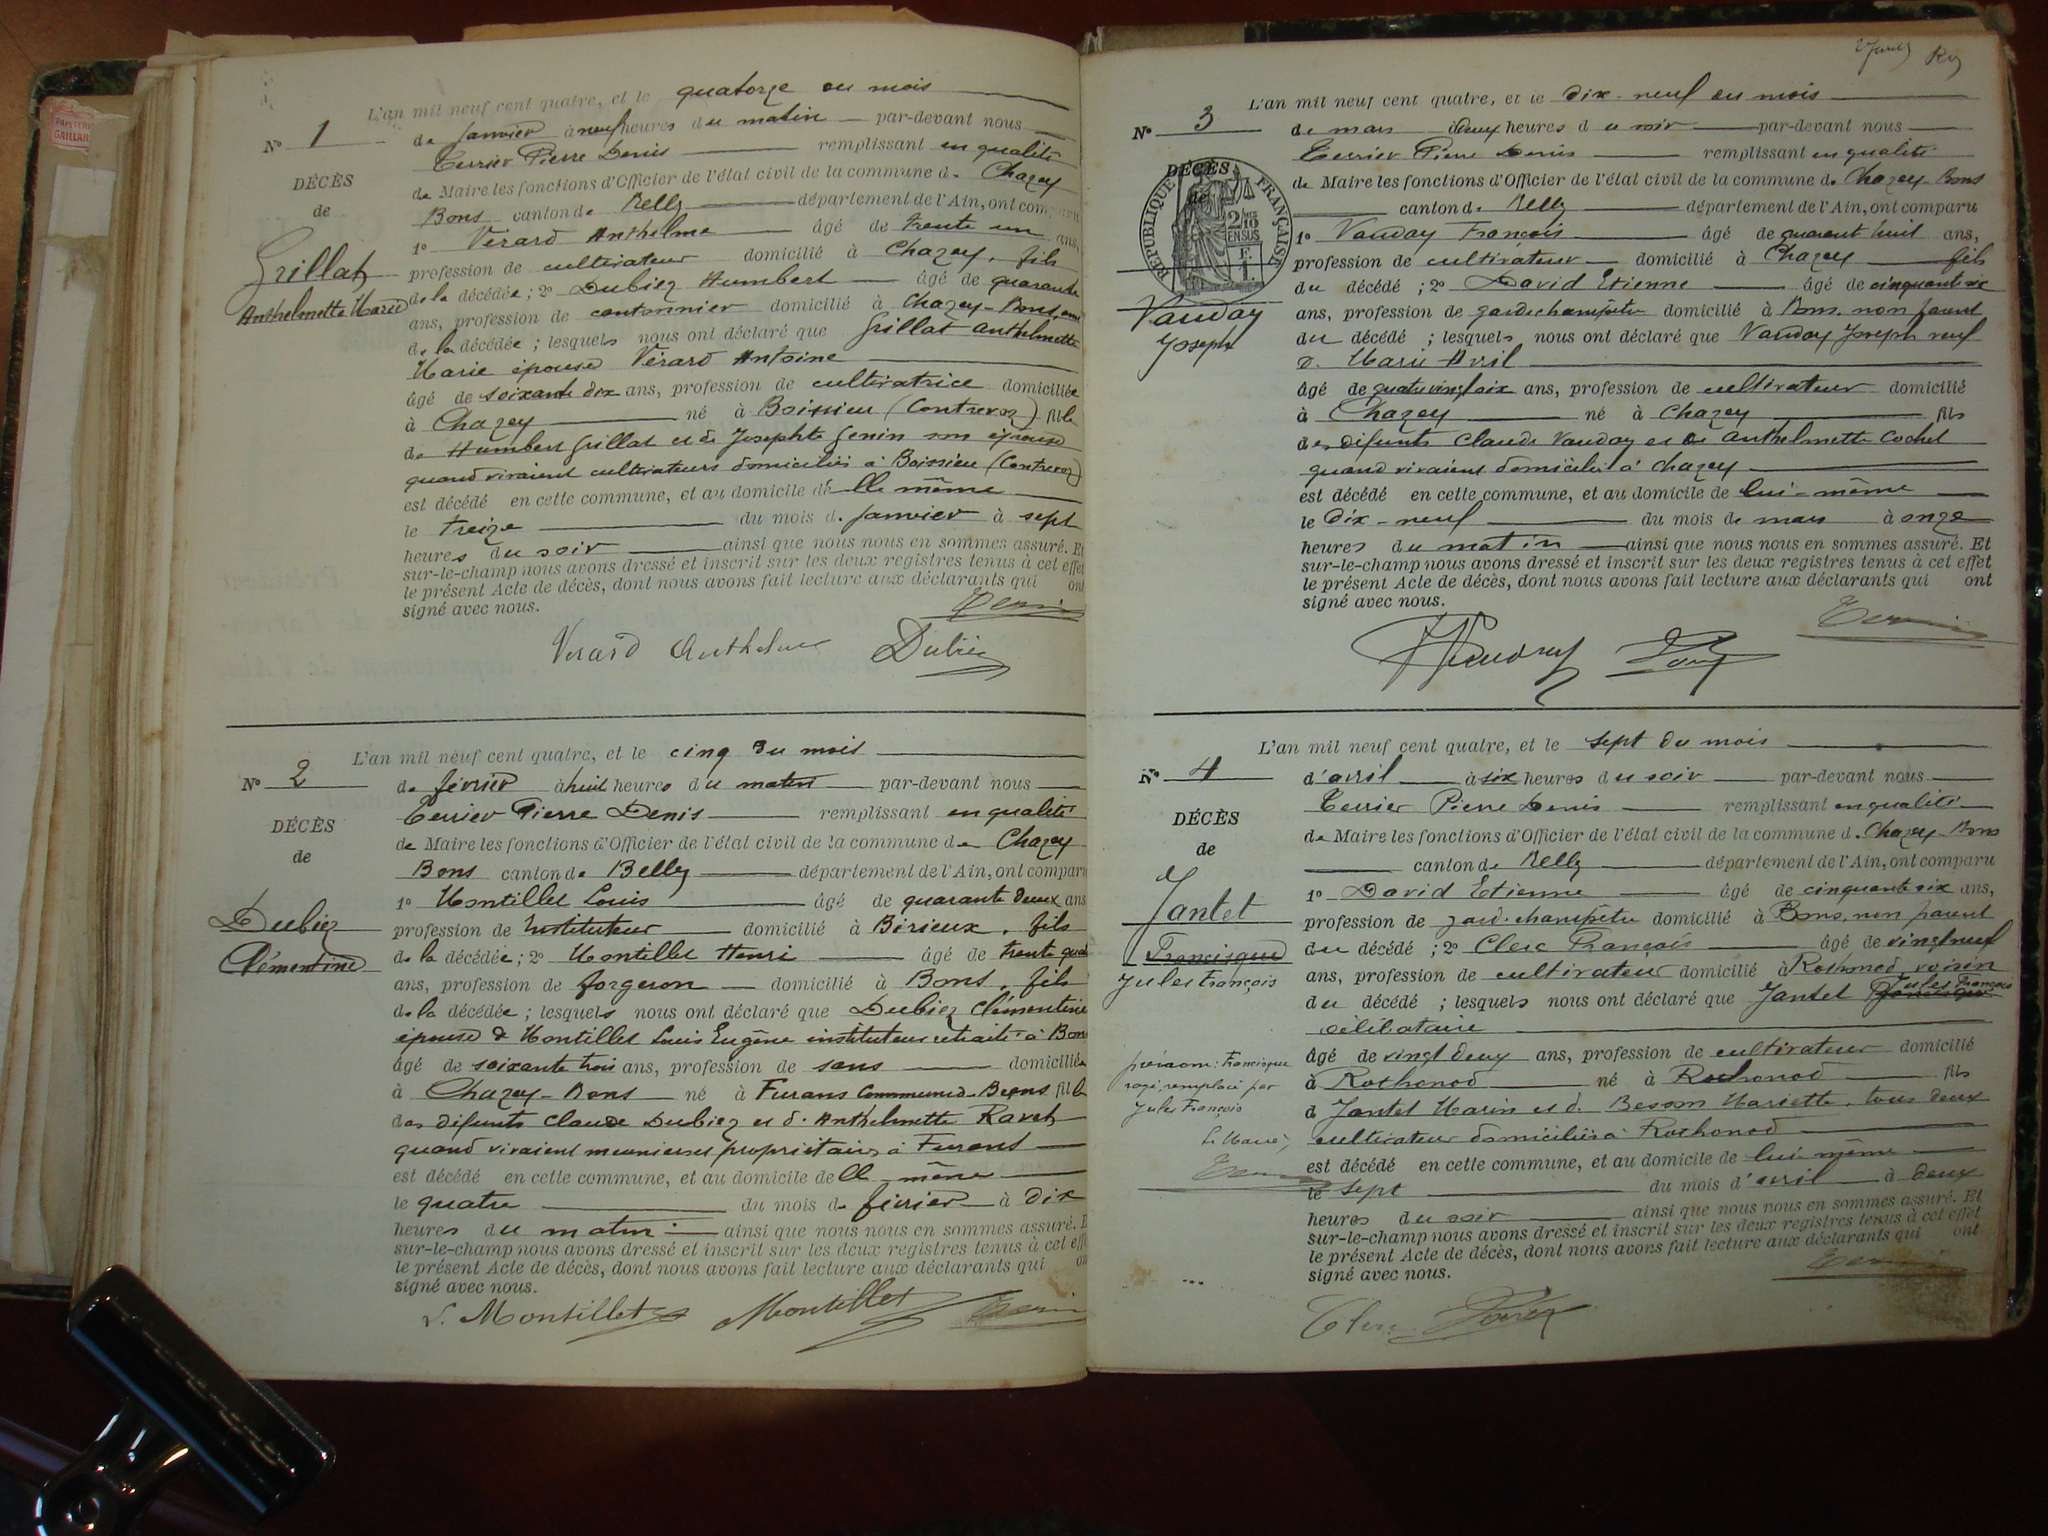 L'an mil neuf cent quatre, et le quatorze du mois
N° 1
de janvier à neuf heures du matin par-devant nous
Terrier Pierre Denis remplissant en qualité
DÉCÈS
de Maire les fonctions d'Officier de l'état civil de la commune de Chazey
de
Bons canton de Belley département de l'Ain, ont comparu
1° Vérard Anthelme âgé de trente un ans,
Grillat
profession de cultivateur domicilié à Chazey, fils
Anthelmette Marie
de la décédée; 2° Dubiez Humbert âgé de quarante
ans, profession de cantonnier domicilié à Chazey-Bons,
de la décédée; lesquels nous ont déclaré que Grillat Anthelmette
Marie épouse Vérard Antoine
âgé de soixante dix ans, profession de cultivatrice domiciliée
à Chazey né à Boissieu (Contrevoz) fille
de Humbert Grillat et de Josephte Genin son épouse
quand vivaient cultivateurs domiciliés à Boissieu (Contrevoz)
est décédé en cette commune, et au domicile d'elle même
le treize du mois de janvier à sept
heures du soir ainsi que nous nous en sommes assuré. Et
sur-le-champ nous avons dressé et inscrit sur les deux registres tenus à cet effet
le présent Acte de décès, dont nous avons fait lecture aux déclarants qui ont
signé avec nous.
Terrier
Vérard Anthelme Dubiez
L'an mil neuf cent quatre, et le cinq du mois
N° 2
de février à huit heures du matin par-devant nous
Terrier Pierre Denis remplissant en qualité
DÉCÈS
de Maire les fonctions d'Officier de l'état civil de la commune de Chazey
de
Bons canton de Belley département de l'Ain, ont comparu
1° Montillet Louis âgé de quarante deux ans
Dubiez
profession de Instituteur domicilié à Birieux, fils
Clémentine
de la décédée; 2° Montillet Henri âgé de trente
ans, profession de forgeron domicilié à Bons, fils
de la décédée; lesquels nous ont déclaré que Dubiez Clémentine
épouse de Montillet Louis Eugène instituteur retraité à Bons
âgé de soixante trois ans, profession de sans domiciliée
à Chazey-Bons né à Furans Commune de Brens fille
des défunts Claude Dubiez et d'Anthelmette Ravet
quand vivaient meuniers et propriétaires à Furans
est décédé en cette commune, et au domicile d'elle même
le quatre du mois de février à dix
heures du matin ainsi que nous nous en sommes assuré. E
sur-le-champ nous avons dressé et inscrit sur les deux registres tenus à cet eff
le présent Acte de décès, dont nous avons fait lecture aux déclarants qui on
signé avec nous.
L. Montillet Montillet Terrier
L'an mil neuf cent quatre, et le dix-neuf du mois
N° 3
de mars à deux heures du soir par-devant nous
Terrier Pierre Denis remplissant en qualité
DÉCÈS
de Maire les fonctions d'Officier de l'état civil de la commune de Chazey-Bons
de
RÉPUBLIQUE FRANÇAISE
2/10 EN SUS
canton de Belley département de l'Ain, ont comparu
1° Vauday François âgé de quarant huit ans,
profession de cultivateur domicilié à Chazey fils
du décédé; 2° David Etienne âgé de cinquante six
Vauday
ans, profession de garde champêtre domicilié à Bons, non parent
Joseph
du décédé; lesquels nous ont déclaré que Vauday Joseph veuf
d. Marie Avril
âgé de quatre vingt six ans, profession de cultivateur domicilié
à Chazey né à Chazey fils
des défunts Claude Vauday et de Anthelmette Cochet
quand vivaient domiciliés à Chazey
est décédé en cette commune, et au domicile de lui-même
le dix-neuf du mois de mars à onze
heures du matin ainsi que nous nous en sommes assuré. Et
sur-le-champ nous avons dressé et inscrit sur les deux registres tenus à cet effet
le présent Acte de décès, dont nous avons fait lecture aux déclarants qui ont
signé avec nous.
Terrier
Vauday
L'an mil neuf cent quatre, et le sept du mois
N° 4
d'avril à six heures du soir par-devant nous
Terrier Pierre Denis remplissant en qualité
DÉCÈS
de Maire les fonctions d'Officier de l'état civil de la commune de Chazey-Bons
de
canton de Belley département de l'Ain, ont comparu
1° David Etienne âgé de cinquante six ans,
Jantet
profession de gard. champêtre domicilié à Bons, non parent
Francisque
du décédé; 2° Clerc François âgé de vingt neuf
Jules François
ans, profession de cultivateur domicilié à Rothonod, voisin
du décédé; lesquels nous ont déclaré que Jantet Francisque Jules François
célibataire
prénom: Francisque
âgé de vingt deux ans, profession de cultivateur domicilié
rayé, remplacé par
à Rothonod né à Rothonod fils
Jules François
d Jantet Marin et d. Besson Mariette, tous deux
Le Maire,
cultivateurs domiciliés à Rothonod
Terrier
est décédé en cette commune, et au domicile de lui même
le sept du mois d'avril à deux
heures du soir ainsi que nous nous en sommes assuré. Et
sur-le-champ nous avons dressé et inscrit sur les deux registres tenus à cet effet
le présent Acte de décès, dont nous avons fait lecture aux déclarants qui ont
signé avec nous.
Terrier
Clerc David